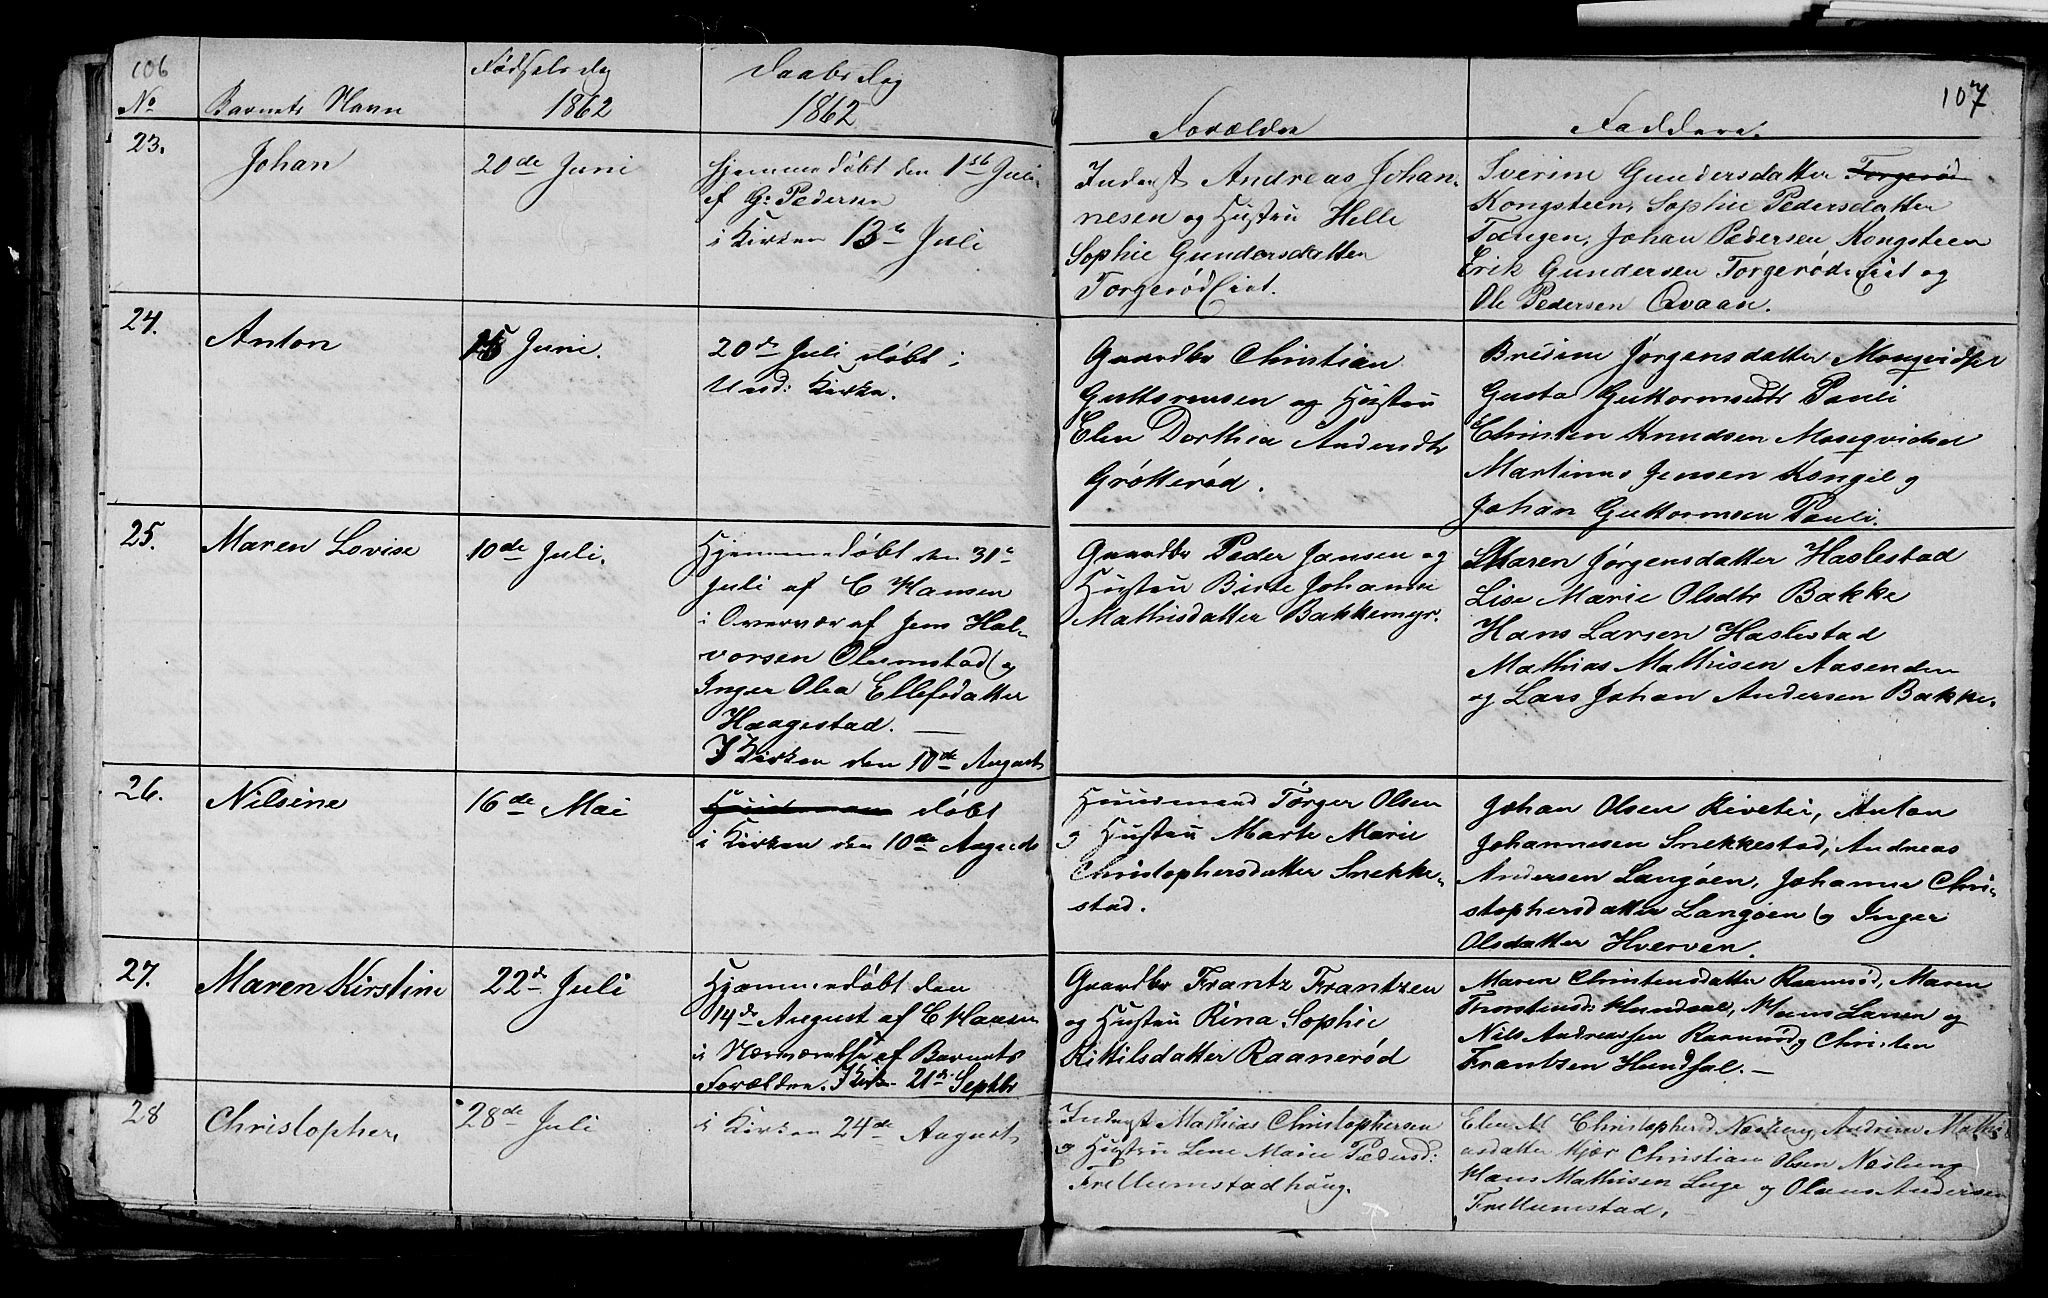 106
No
Barnets Navn
Fødselsdag
1862
Daabsdag
1862
Forældre
Faddere.
107
23.
Johan
20de Juni
Hjemmedøbt den 1ste Juli
af G: Pedersen
i Kirken 13de Juli
Inderst Andreas Johan-
nesen og Hustru Helle
Sophie Gundersdatter
Torgerødeiet.
Sverine Gundersdatter Torgerød
Kongsteen, Sophie Pedersdatter
Tangen, Johan Pedersen Kongsteen
Erik Gundersen Torgerødeiet og
Ole Pedersen Qvaan.
24.
Anton
Juni.
20de Juli døbt i
Und: Kirke.
Gaardbr Christian
Guttormsen og Hustru
Elen Dorthea Andersdtr
Grøtterød.
Bredine Jørgensdatter
Gusta Guttormsdtr Pauli
Christen Knudsen
Martinus Jensen Kongel og
Johan Guttormsen Pauli.
25.
Maren Lovise
10de Juli.
Hjemmedøbt den 31te
Juli af C Hansen
i Overvær af Jens Hal-
vorsen Olumstad og
Inger Olea Ellefsdatter
Haagestad. —
I Kirken den 10de August
Gaardbr Peder Jansen og
Hustru Birte Johanne
Mathisdatter Bakkemyr.
Maren Jørgensdatter Haslestad
Lise Marie Olsdtr Bakke
Hans Larsen Haslestad
Mathias Mathisen Aasenden
og Lars Johan Andersen Bakke.
26.
Nilsine
16de Mai
døbt
i Kirken den 10de August
Huusmand Torger Olsen
og Hustru Marte Marie
Christophersdatter Snekke-
stad.
Johan Olsen Rivetei, Anton
Johannesen Snekkestad, Andreas
Andersen Langøen, Johanne Chri-
stophersdatter Langøen og Inger
Olsdatter Hverven.
27.
Maren Kirstine
22de Juli
Hjemmedøbt den
14de August af C Hansen
i Nærværelse af Barnets
Forældre. I Kirken 21de Septbr
Gaardbr Frantz Frantzen
og Hustru Rina Sophie
Kittilsdatter Raanerød
Maren Christensdatter Raanerød, Maren
Thorstensd: Hundsal, Hans Larsen og
Nils Andreassen Raanerød og Christen
Frantzen Hundsal. —
28
Christopher,
28de Juli
i Kirken 24de August
Inderst Mathias Christophersen
og Hustru Lene Marie Pedersd:
Frellumstadhaug.
Elen M Christophersd Næsberg, Andrine Mathi-
asdatter Kjær Christian Olsen Næsberg
Hans Mathisen Luge og Olaus Andersen
Frellumstad,